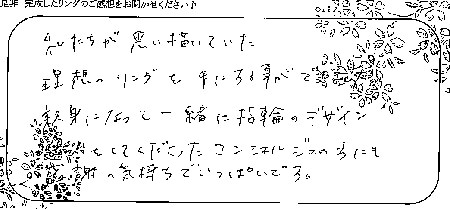 是非 完成したリングのご感想をお聞かせください♪
私たちが思い描いていた
理想のリングを手にする事がで
親身になって一緒に指輪のデザイン
をしてくださったコンシェルジュの方にも
感謝の気持ちでいっぱいです。